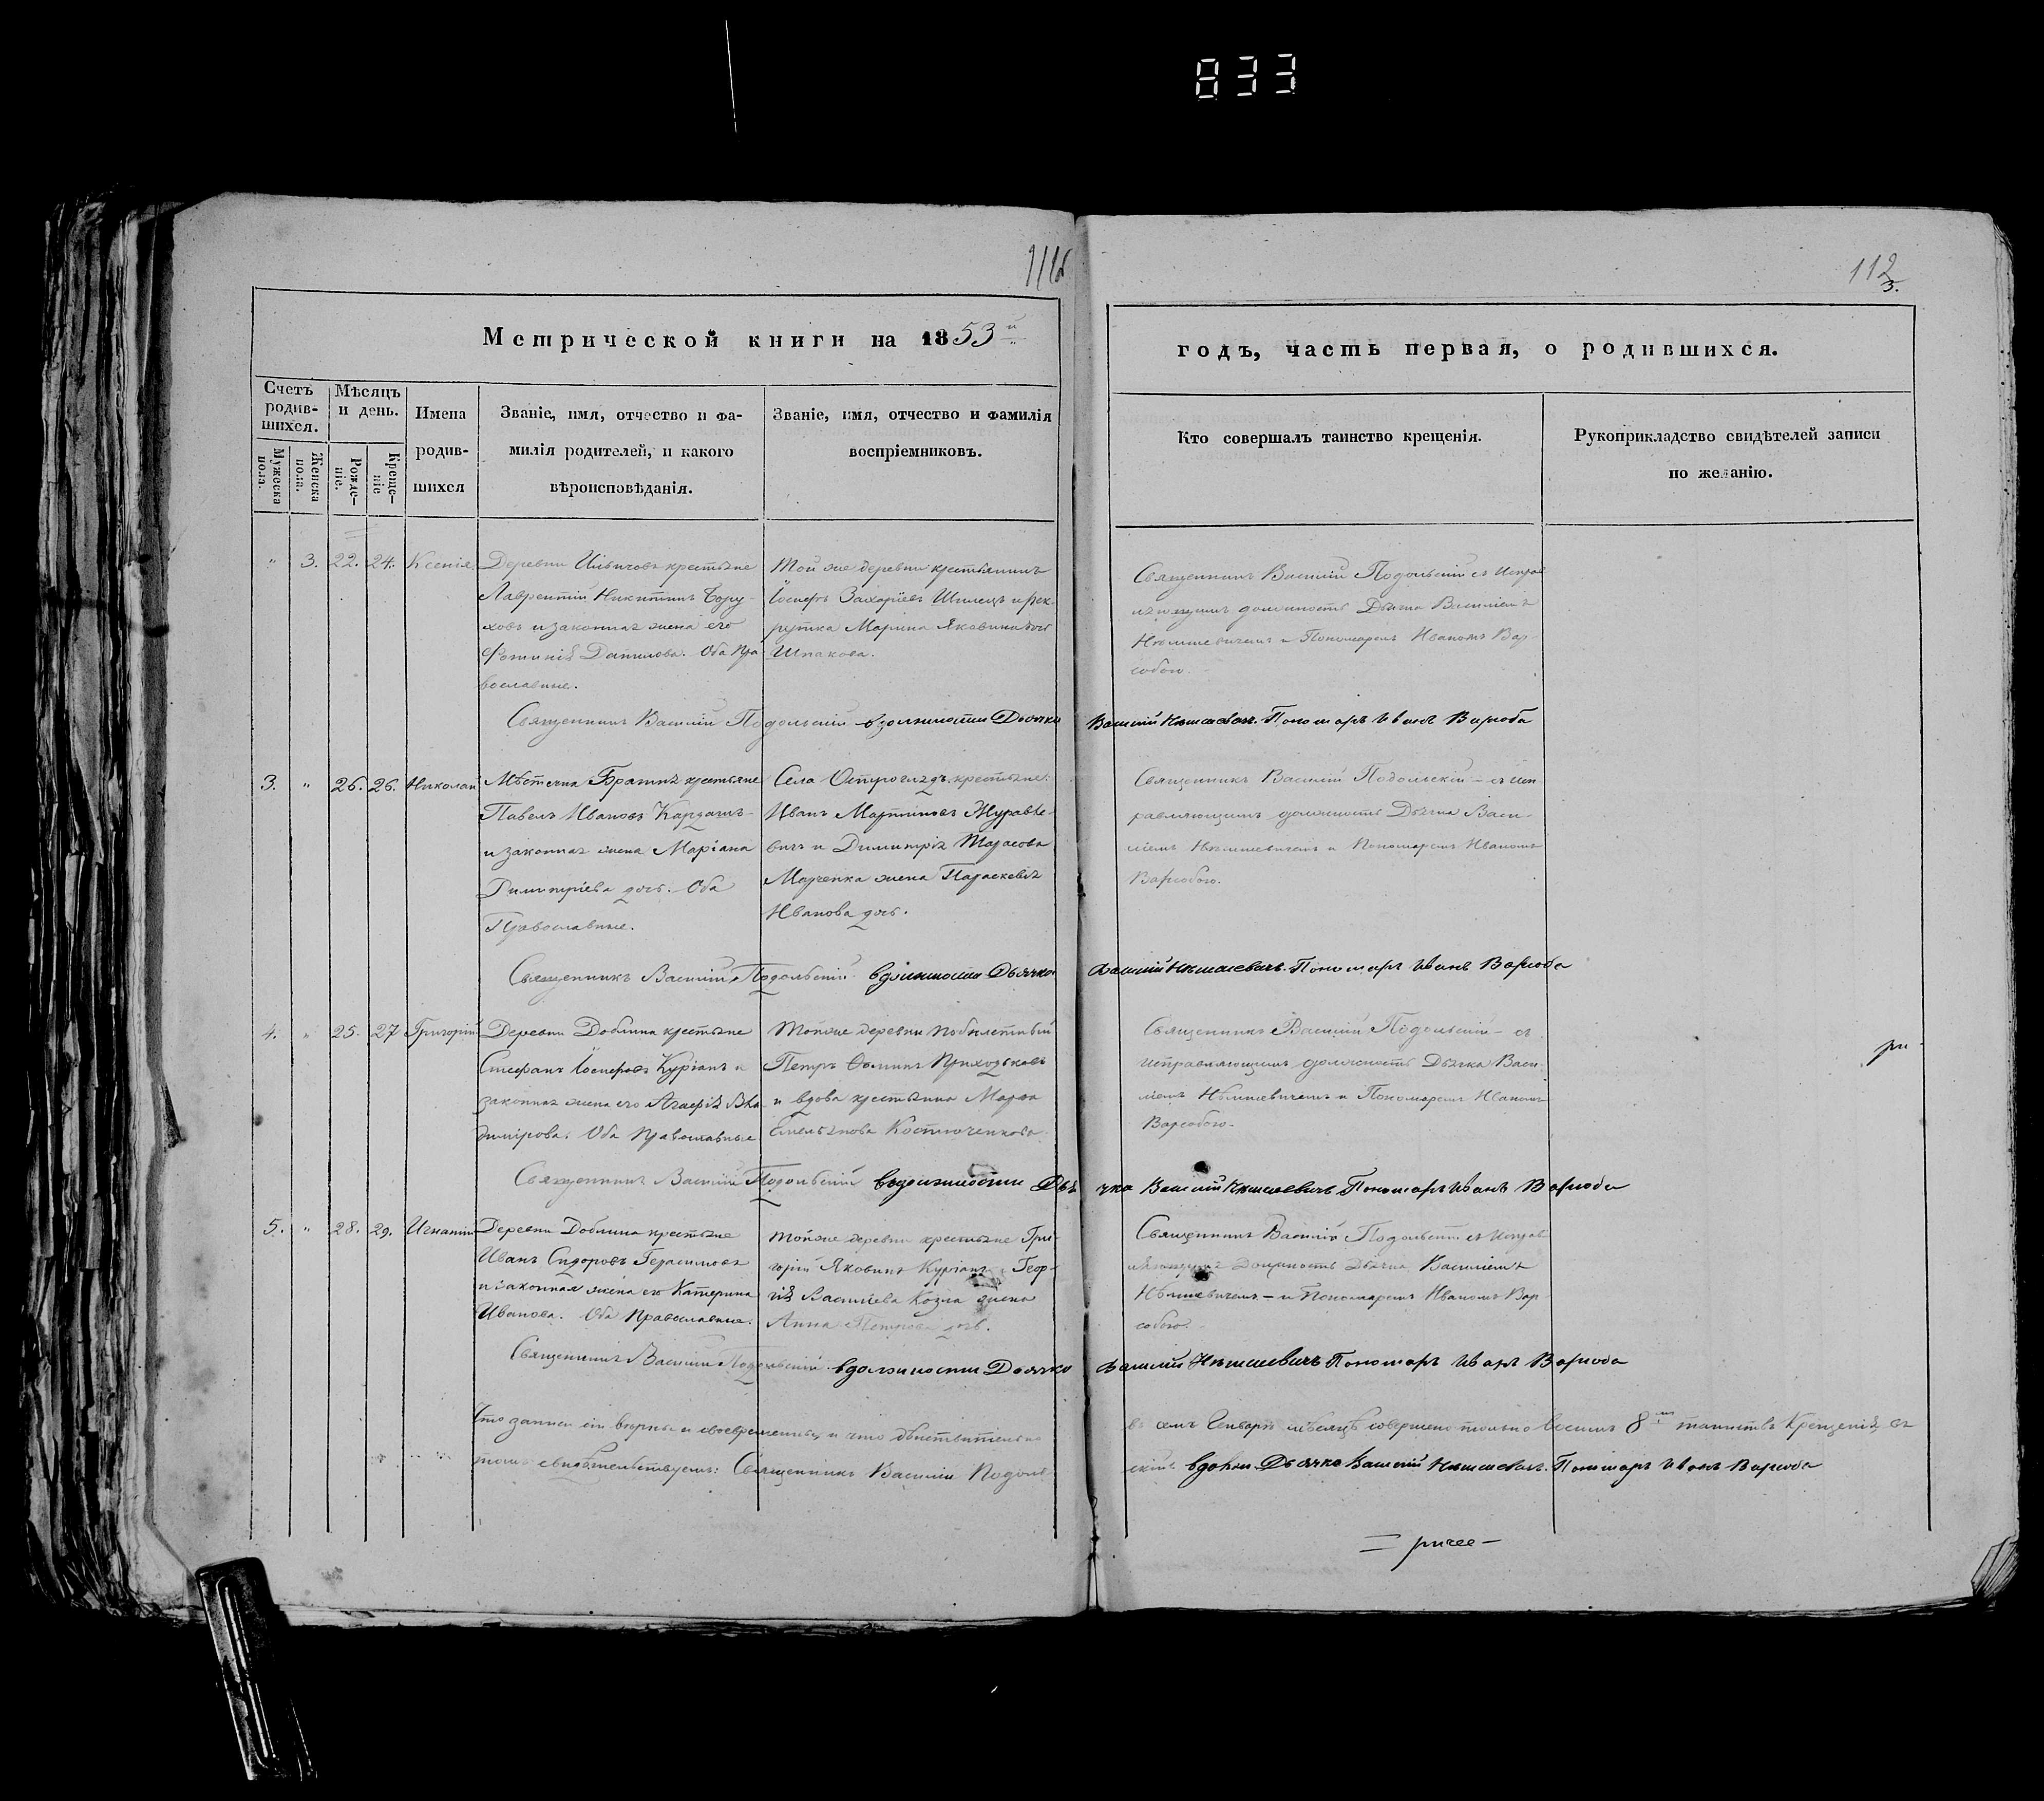 833
111б
112
3.
Метрической книги на 1853й
годъ, часть первая, о родившихся.
Счетъ родив-шихся.
Мужеска пола.
Женска пола.
Мѣсяцъ и день.
Рожде-ніе.
Креще-ніе
Имена
родив-
шихся
Званіе, имя, отчество и фа-
милія родителей, и какого
вѣроисповѣданія.
Званіе, имя, отчество и фамилія
воспріемниковъ.
Кто совершалъ таинство крещенія.
Рукоприкладство свидѣтелей записи
по желанію.
" 3. 22. 24. Ксенія.
Деревни крестьяне
Лаврентій Никитинъ Бору-
ховъ и законная жена его
Фотинія Данилова. Оба пра-
вославные.
Той же деревни крестьянинъ
Іосифъ Захаріевъ Шилецъ и рек-
рутка Марина Яковлина дочь
Шпакова.
Священникъ Василій Подольскій съ исправ
ляющимъ должность Дьячка Василіемъ
Нѣмшевичемъ и Пономаремъ Иваномъ Вар-
собою.
Священникъ Василій Подольскій в должности Дьячка Василій Нѣмшевичъ. Пономарь Иванъ Варсоба
3. " 26. 26. Николай
Мѣстечка Брагиня крестьяне
Павелъ Ивановъ
и законная жена Маріана
Димитріева дочь. Оба
Православные.
Села Остроглядъ крестьяне:
Иванъ Мартиновъ Журавле-
вичъ и Димитрія Тарасова
Марченка жена Параскевія
Иванова дочь.
Священникъ Василій Подольскій – съ исп
равляющимъ должность Дьячка Васи-
ліемъ Нѣмшевичемъ и Пономаремъ Иваномъ
Варсобою.
Священникъ Василій Подольскій в должности Дьячка Василій Нѣмшевичъ. Пономарь Иванъ Варсоба
4. " 25. 27 Григорій
Деревни Доблина крестьяне
Стефанъ Іосифовъ Куріанъ и
законная жена его Агафія Вла-
димірова. Оба Православные
Той же деревни
Петръ Ѳоминъ Приходьковъ
и вдова крестьянка Марѳа
Емельянова Костюченкова.
Священникъ Василій Подольскій – съ
исправляющимъ должность Дьячка Васи-
ліемъ Нѣмшевичемъ и Пономаремъ Иваномъ
Варсобою.
Священникъ Василій Подольскій в должности Дьячка Василій Нѣмшевичъ Пономарь Иванъ Варсоба
5. " 28. 29. Игнатій
Деревни Доблина крестьяне
Иванъ Сидоровъ Герасимовъ
и законная жена его Катерина
Иванова. Оба Православные.
Той же деревни крестьяне Гри-
горій Яковинъ Куріанъ и Геор-
гія Василіева Козла жена
Анна Петрова дочь.
Священникъ Василій Подольскій съ исправ
ляющимъ должность Дьячка Василіемъ
Нѣмшевичемъ – и Пономаремъ Иваномъ Вар-
собою.
Священникъ Василій Подольскій в должности Дьячка Василій Нѣмшевичъ Пономарь Иванъ Варсоба
Что записи сіи вѣрны и своевременны, и что дѣйствительно въ семъ Генварѣ мѣсяцѣ совершено только восемь 8 таинствъ Крещенія въ
томъ свидѣтельствуемъ: Священникъ Василій Подольскій в долж. Дьячка Василій Нѣмшевичъ. Пономарь Иванъ Варсоба